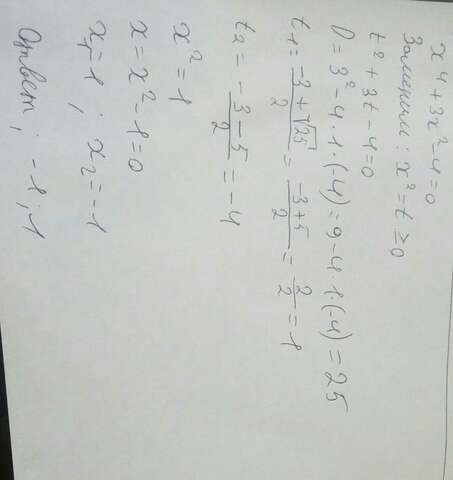 x⁴+3x²-4=0
Заменим: x²=t ≥0
t²+3t-4=0
D=3²-4·1·(-4)=9-4·1·(-4)=25
t₁=(-3+√25)/2=(-3+5)/2=2/2=1
t₂=(-3-5)/2=-4
x²=1
x=x²-1=0
x₁=1; x₂=-1
Ответ; -1;1